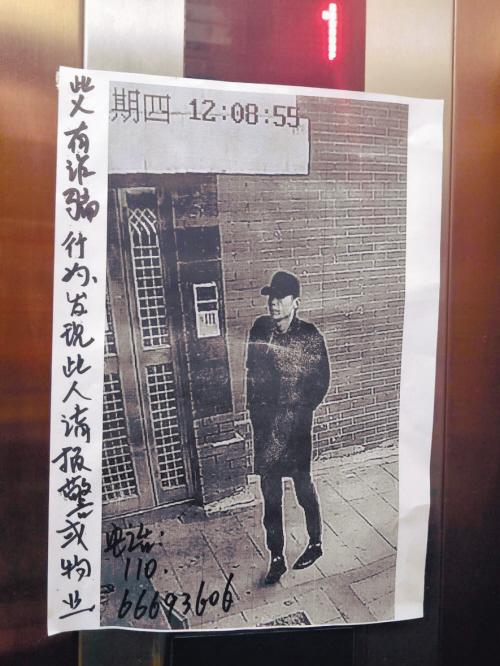 此人有诈骗行为发现此人请报警或物业
期四 12:08:55
电话:
110.
66693606